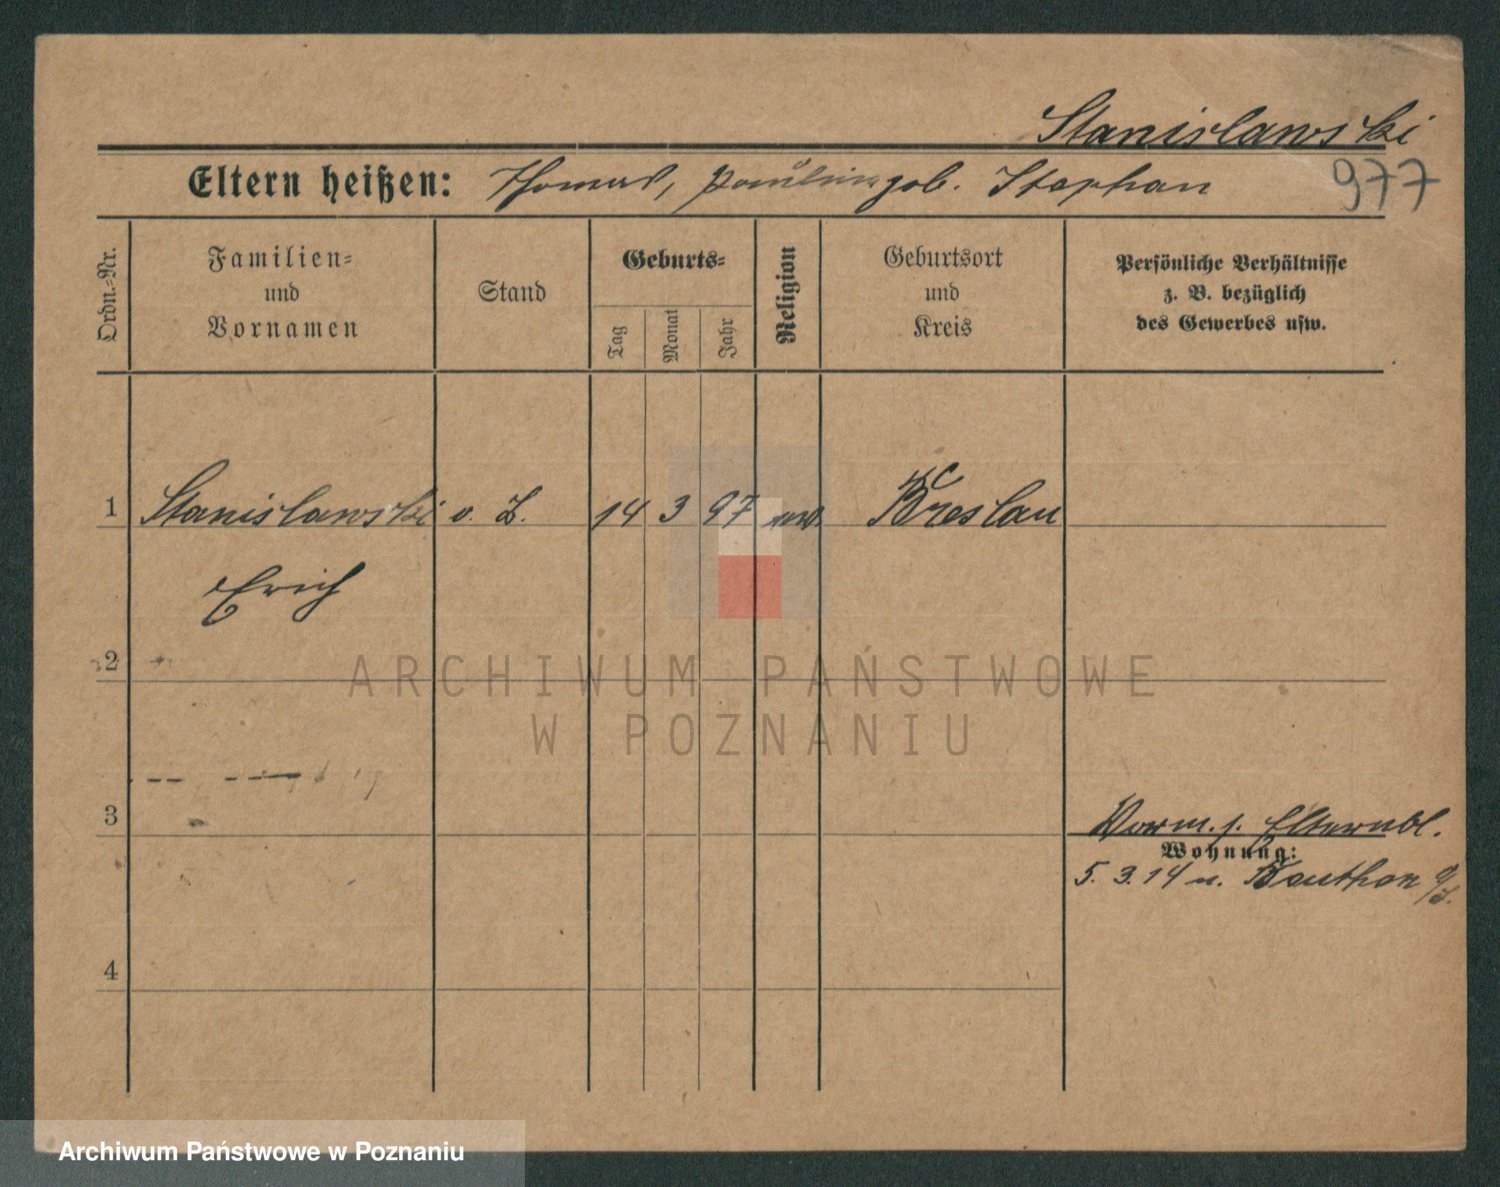 Stanislawski
Eltern heißen: Thomas, Paulin geb. Stephan
977
Ordn.-Nr.
Familien-
und
Vornamen
Stand
Geburts-
Tag
Monat
Jahr
Religion
Geburtsort
und
Kreis
Persönliche Verhältnisse
z. B. bezüglich
des Gewerbes usw.
1 Stanislawski o. 14 3 97 Breslau
Erich
2
3
Elternbl.
Wohnung:
5. 3. 14 n. Beuthen
4
ARCHIWUM PAŃSTWOWE
W POZNANIU
Archiwum Państwowe w Poznaniu